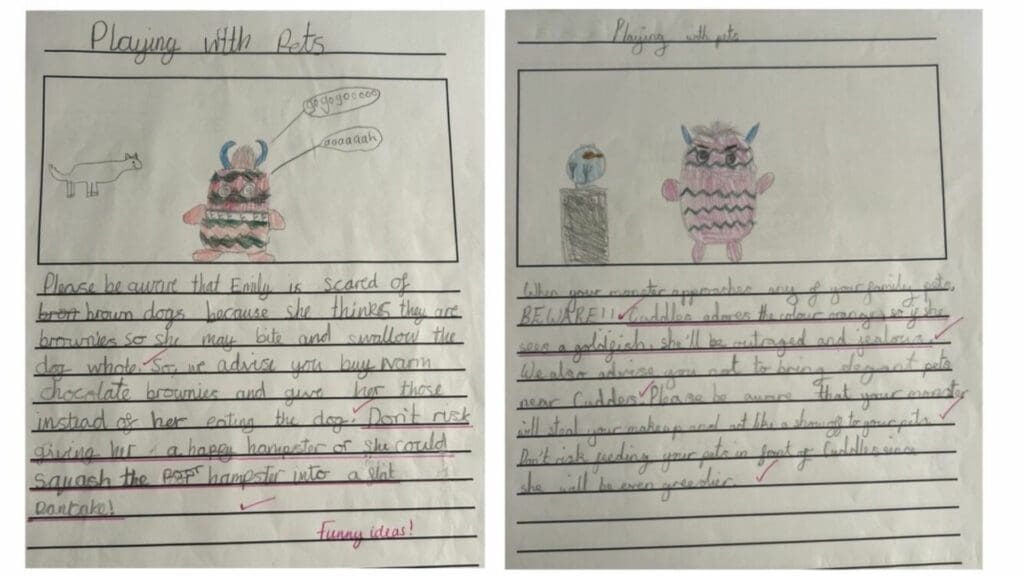 Playing with Pets
gogogooooo
aaaaaah
Please be aware that Emily is scared of
bron brown dogs because she thinks they are
brownies so she may bite and swallow the
dog whole. So, we advise you buy warm
chocolate brownies and give her those
instead of her eating the dog. Don't risk
giving her a happy hampster or she could
squash the hampster into a flat
Pancake!
Funny ideas!
Playing with pets
When your monster approaches any of your family pets,
BEWARE!! Cuddles adores the colour orange, so if she
sees a goldfish, she'll be outraged and jealous.
We also advise you not to bring elegant pets
near Cuddles. Please be aware that your monster
will steal your makeup and act like a showoff to your pets.
Don't risk feeding your pets in front of Cuddles since
she will be even greedier.